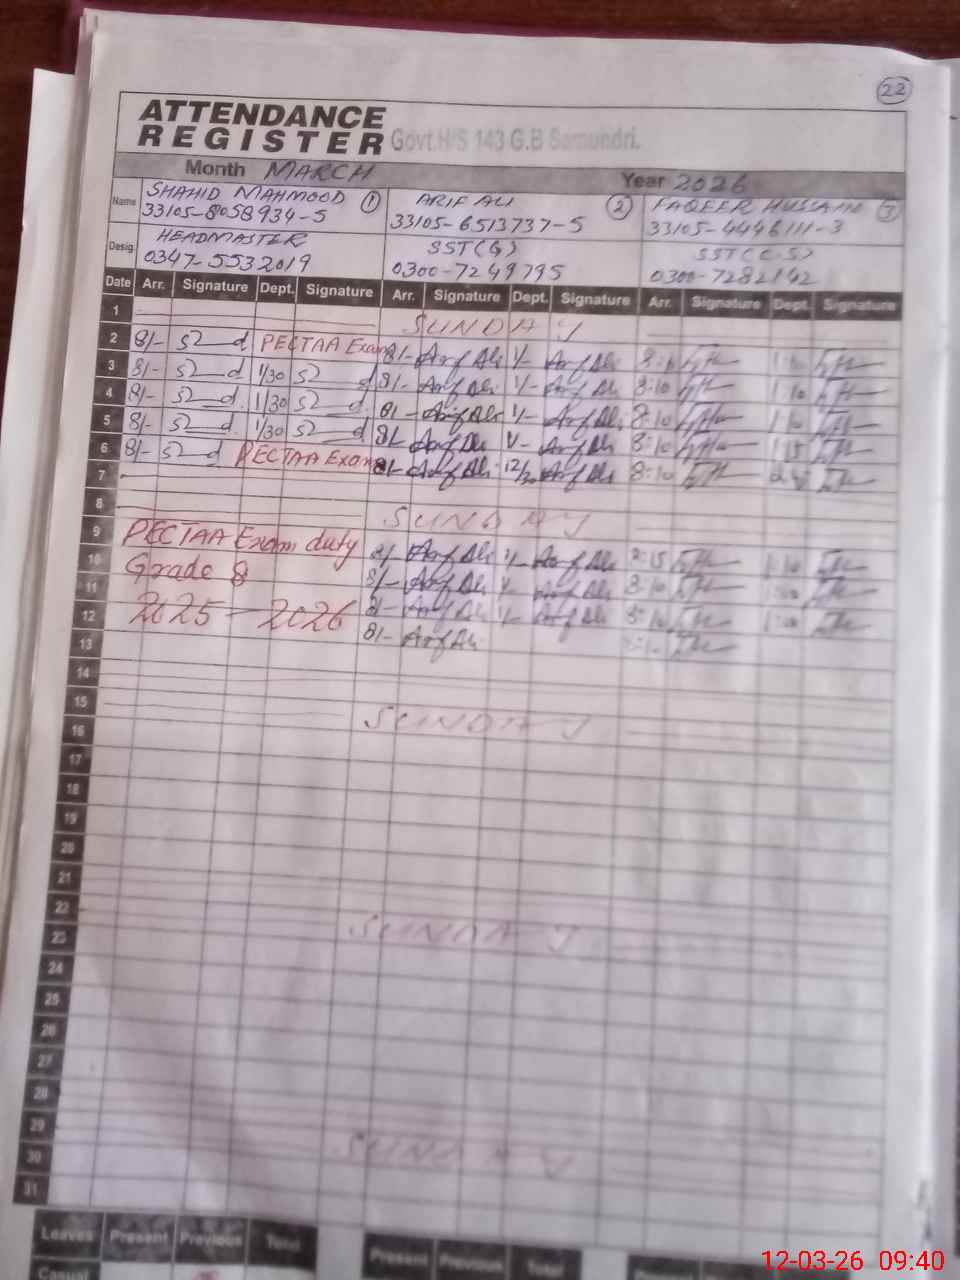 22
ATTENDANCE
REGISTER Govt.H/S 143 G.B Samundri.
Month MARCH Year 2026
Name SHAHID MAHMOOD 1 ARIF ALI 2 FAQEER HUSSAIN 3
33105-8058934-5 33105-6513737-5 33105-4446111-3
Desig. HEADMASTER SST(G) SST(C.S)
0347-5532019 0300-7249795 0300-7282142
Date Arr. Signature Dept. Signature Arr. Signature Dept. Signature Arr. Signature Dept. Signature
1 SUNDAY
2 8/- PECTAA Exam 8/- Arif Ali 1/- Arif Ali 8:10 1:10
3 8/- 1/30 8/- Arif Ali 1/- Arif Ali 8:10 1:10
4 8/- 1/30 8/- Arif Ali 1/- Arif Ali 8:10 1:10
5 8/- 1/30 8/- Arif Ali 1/- Arif Ali 8:10 1:15
6 8/- PECTAA Exam 8/- Arif Ali 12/30 Arif Ali 8:10
7
8 SUNDAY
9 PECTAA Exam duty 8/- Arif Ali 1/- Arif Ali 8:15 1:10
10 Grade 8 8/- Arif Ali 1/- Arif Ali 8:10
11 2025-2026 8/- Arif Ali 1/- Arif Ali 8:10
12 8/- Arif Ali
13
14
15 SUNDAY
16
17
18
19
20
21
22 SUNDAY
23
24
25
26
27
28
29 SUNDAY
30
31
Leaves Present Previous Total Present Previous Total Present
Casual
12-03-26 09:40